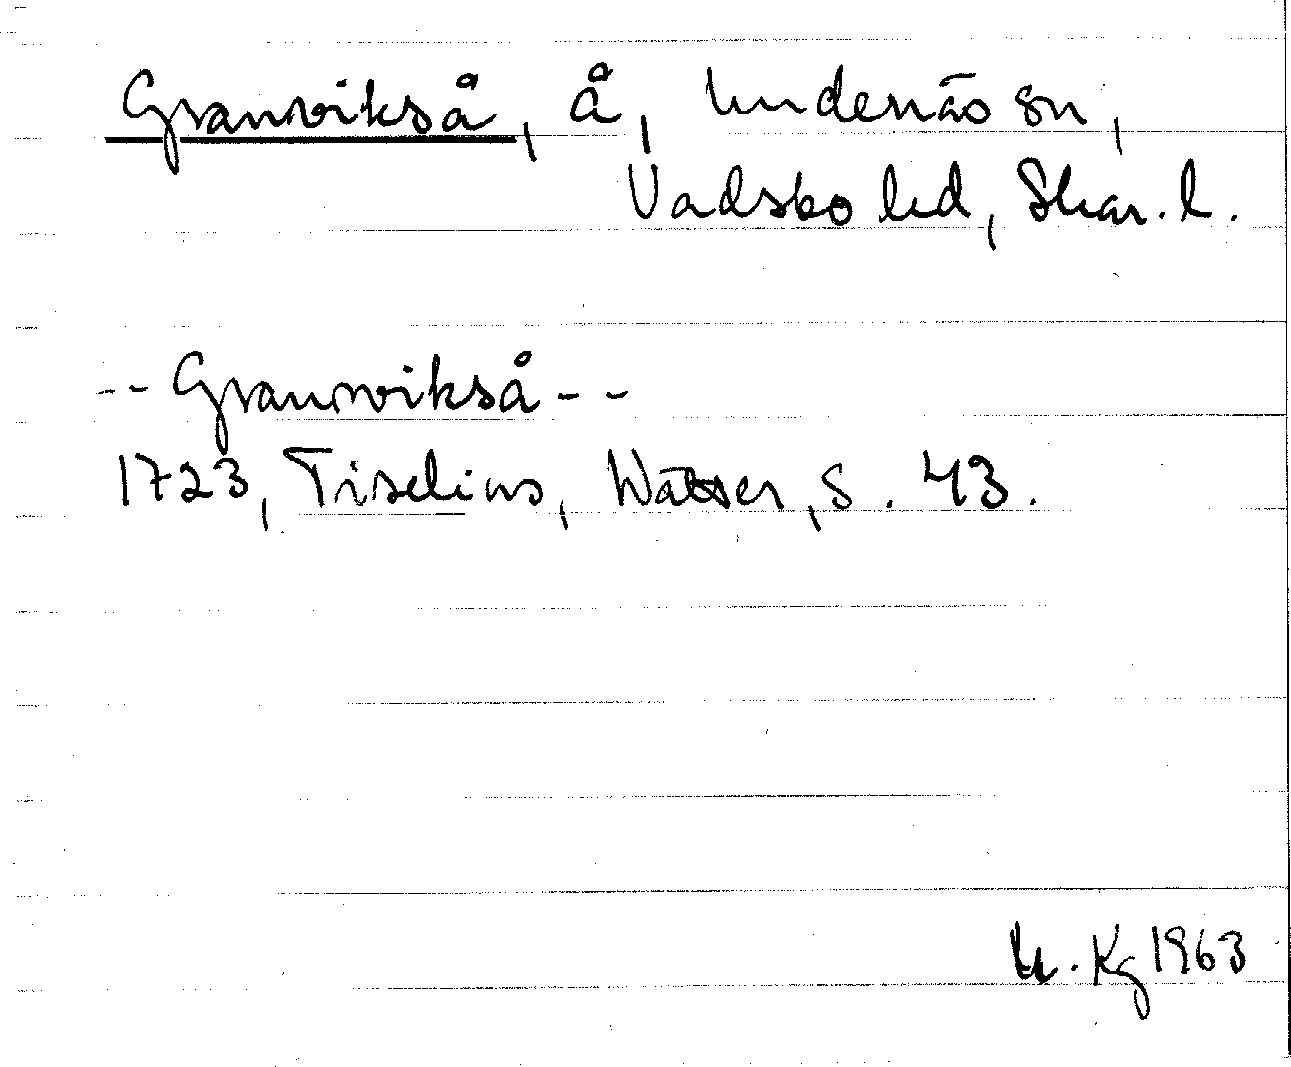 Granvikså, å, Undenäs sn,
Vadsbo hd, Skar. l.
-- Granwikså --
1723, Tiselius, Wätter, s. 43.
Kg 1963